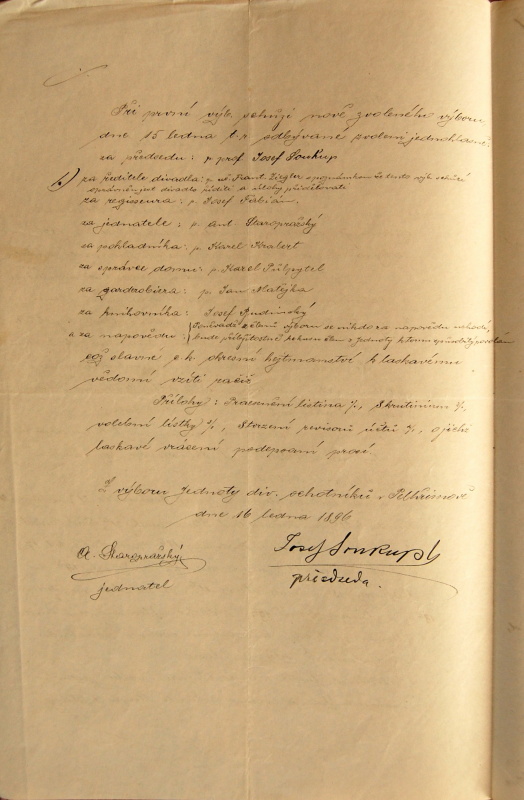 Při první výb. schůzi nově zvoleného výboru
dne 15 ledna t. r. odbývané zvoleni jednohlasně:
za předsedu: p. prof. Josef Soukup
za ředitele divadla: p. Frant. Ziegler s poznámkou že tento
oprávněn jest divadlo říditi a úlohy přidělovati
za regisseura: p. Josef Fabián.
za jednatele: p. Ant. Staropražský
za pokladníka: p. Karel Kralert
za správce domu: p. Karel Půlpytel
za gardrobiera: p. Jan Matějka
za knihovníka: Josef Budinský
a za napovědu: členů výboru se nikdo za napovědu nehodí,
bude příležitostně člen z jednoty k tomu způsobilý povolán
což slavné c. k. okresní hejtmanství k laskavému
vědomí vzíti račiž
Přílohy: Presenční listina 1/, Skrutinium 2/,
volební lístky 3/, revisorů účtů 4/, o jichž
laskavé vrácení podepsaní prosí.
Z výboru Jednoty div. ochotníků v Pelhřimově
dne 16 ledna 1896
A. Staropražský
jednatel
Josef Soukup
předseda.